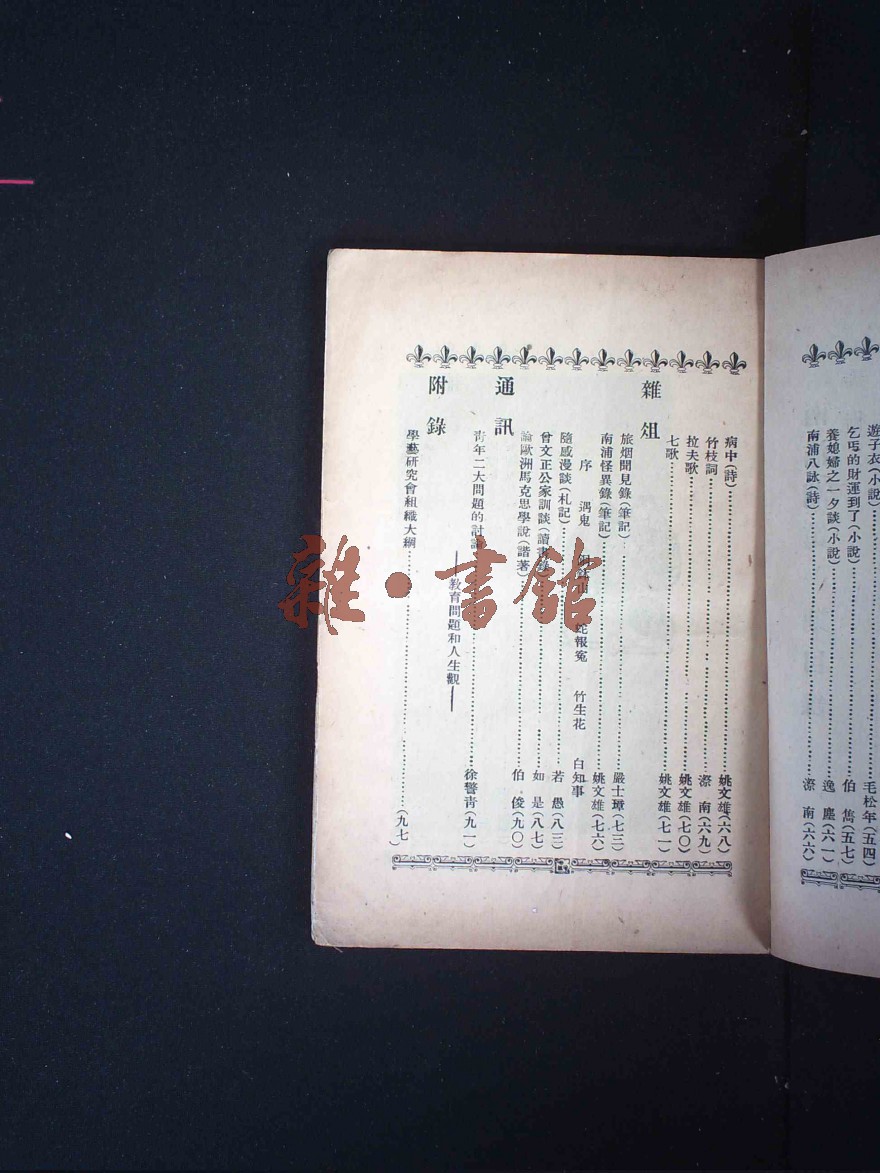 遊子衣(小說)…………毛松年(五四)
乞丐的財運到了(小說)…………伯 雋(五七)
養媳婦之一夕談(小說)…………逸 塵(六一)
南浦八詠(詩)…………漈 南(六六)
病中(詩)…………姚文雄(六八)
竹枝詞…………漈 南(六九)
拉夫歌…………姚文雄(七〇)
七歌…………姚文雄(七一)
雜俎
旅烟聞見錄(筆記)…………嚴士璋(七三)
南浦怪異錄(筆記)…………姚文雄(七六)
序 遇鬼 山 蛇報冤 竹生花 白知事
隨感漫談(札記)…………若 愚(八三)
曾文正公家訓談(讀書…………如 是(八七)
論歐洲馬克思學說(譜著)…………伯 俊(九〇)
通訊
靑年二大問題的討論…………徐警靑(九一)
——敎育問題和人生觀——
附錄
學藝硏究會組織大綱…………(九七)
雜·書館